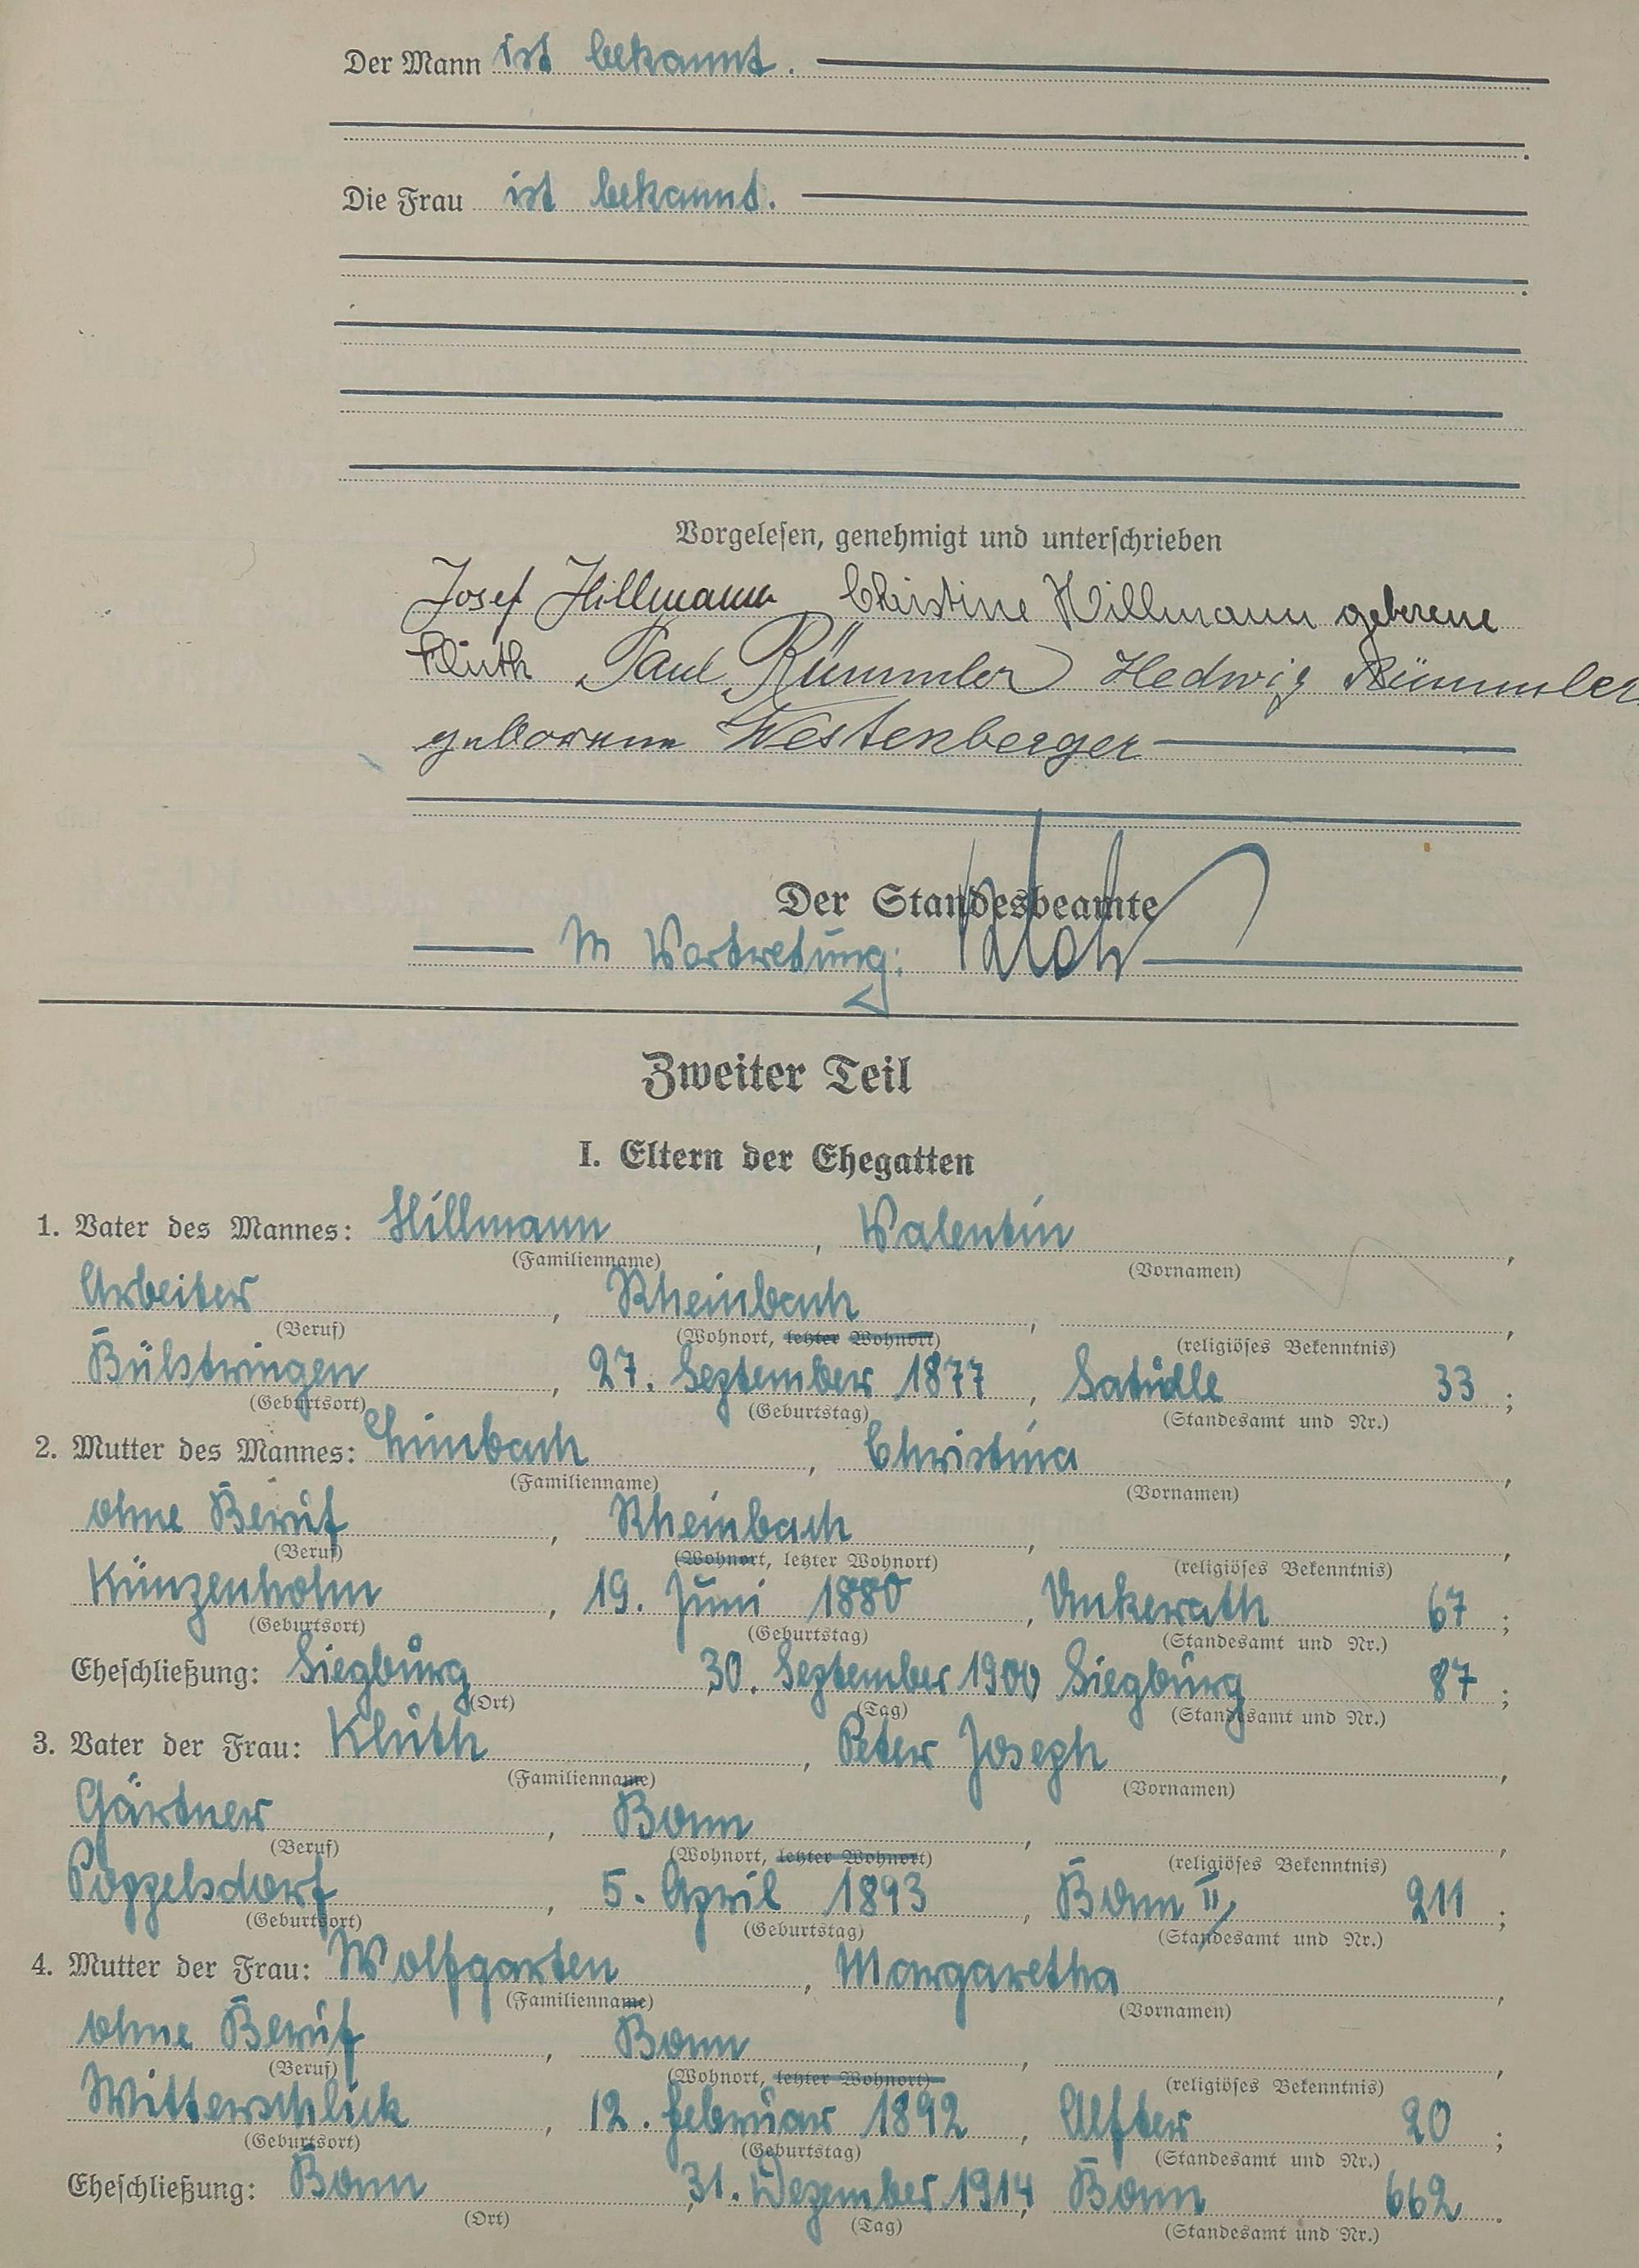 Der Mann ist bekannt.
Die Frau ist bekannt.
Vorgelesen, genehmigt und unterschrieben
Josef Hillmann Christine Hillmann geborene
Klüth Paul Rümmler Hedwig Rümmler
geborene Westenberger
Der Standesbeamte
In Vertretung:
Zweiter Teil
I. Eltern der Ehegatten
1. Vater des Mannes: Hillmann, Valentin,
(Familienname) (Vornamen)
Arbeiter, Rheinbach, ,
(Beruf) (Wohnort, letzter Wohnort) (religiöses Bekenntnis)
Bülstringen, 27. September 1877, Satuelle 33;
(Geburtsort) (Geburtstag) (Standesamt und Nr.)
2. Mutter des Mannes: Limbach, Christina,
(Familienname) (Vornamen)
ohne Beruf, Rheinbach, ,
(Beruf) (Wohnort, letzter Wohnort) (religiöses Bekenntnis)
Künzenhohn, 19. Juni 1880, Unkerath 67;
(Geburtsort) (Geburtstag) (Standesamt und Nr.)
Eheschließung: Siegburg 30. September 1900 Siegburg 87;
(Ort) (Tag) (Standesamt und Nr.)
3. Vater der Frau: Klüth, Peter Joseph,
(Familienname) (Vornamen)
Gärtner, Bonn, ,
(Beruf) (Wohnort, letzter Wohnort) (religiöses Bekenntnis)
Poppelsdorf, 5. April 1893, Bonn II/ 211;
(Geburtsort) (Geburtstag) (Standesamt und Nr.)
4. Mutter der Frau: Wolfgarten, Margaretha,
(Familienname) (Vornamen)
ohne Beruf, Bonn, ,
(Beruf) (Wohnort, letzter Wohnort) (religiöses Bekenntnis)
Witterschlick, 12. Februar 1892, Alfter 20;
(Geburtsort) (Geburtstag) (Standesamt und Nr.)
Eheschließung: Bonn, 31. Dezember 1914, Bonn 662.
(Ort) (Tag) (Standesamt und Nr.)